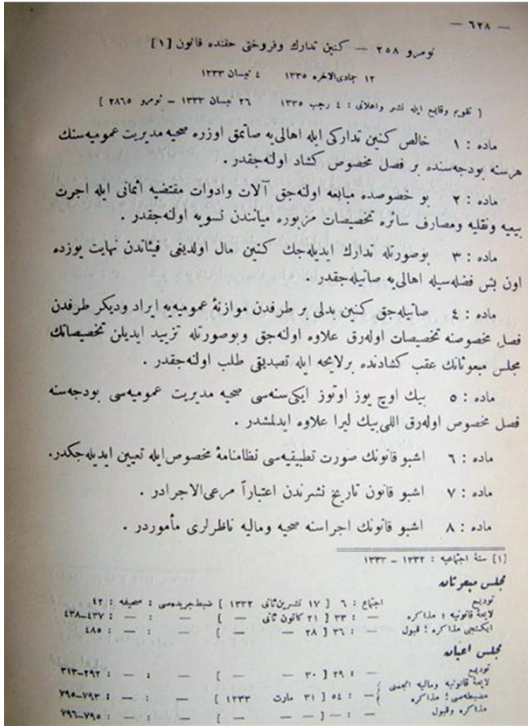 — ٦٢٨ —
نومرو ٢٥٨ — كنين تدارك وفروختى حقنده قانون [١]
١٢ جمادى‌الاخره ١٣٣٥   ٤ نيسان ١٣٣٣
[ تقويم وقايع ايله نشر واعلانى : ٤ رجب ١٣٣٥   ٢٦ نيسان ١٣٣٣ – نومرو ٢٨٦٥ ]
ماده : ١ خالص كنين تداركى ايله اهالى‌يه صاتمق اوزره صحيه مديريت عموميه‌سنك
هرسنه بودجه‌سنده بر فصل مخصوص كشاد اولنه‌جقدر .
ماده : ٢ بو خصوصده مبايعه اولنه‌جق آلات وادوات مقتضيه اثمانى ايله اجرت
بيعيه ونقليه ومصارف سائره تخصيصات مزبوره مياننده تسويه اولنه‌جقدر .
ماده : ٣ بوصورتله تدارك ايديله‌جك كنين مال اولديغى فيئاتدن نهايت يوزده
اون بش فضله‌سيله اهالى‌يه صاتيله‌جقدر .
ماده : ٤ صاتيله‌جق كنين بدلى بر طرفدن موازنهٔ عموميه‌يه ايراد وديكر طرفدن
فصل مخصوصنه تخصيصات اوله‌رق علاوه اولنه‌جق وبوصورتله تزييد ايديلن تخصيصاتك
مجلس مبعوثانك عقب كشادنده برلايحه ايله تصديقى طلب اولنه‌جقدر .
ماده : ٥ بيك اوچ يوز اوتوز ايكى سنه‌سى صحيه مديريت عموميه‌سى بودجه‌سنه
فصل مخصوص اوله‌رق اللى بيك ليرا علاوه ايدلمشدر .
ماده : ٦ اشبو قانونك صورت تطبيقيه‌سى نظامنامهٔ مخصوص ايله تعيين ايديله‌جكدر.
ماده : ٧ اشبو قانون تاريخ نشرندن اعتباراً مرعى‌الاجرادر .
ماده : ٨ اشبو قانونك اجراسنه صحيه وماليه ناظرلرى مأموردر .
[١] سنهٔ اجتماعيه : ١٣٣٢ – ١٣٣٣
مجلس مبعوثان
توديع   اجتماع : ٦ [ ١٧ تشرين ثانى ١٣٣٢ ] ضبط جريده‌سى : صحيفه : ٤٢
لايحهٔ قانونيه ؛ مذاكره   — : ٣٣ [ ٢١ كانون ثانى — ] — : — : ٤٣٧–٤٣٨
ايكنجى مذاكره ؛ قبول   — : ٣٦ [ ٢٨ — — ] — : — : ٤٨٥
مجلس اعيان
توديع   — : ٢٩ [ ٣٠ — — ] — : — : ٢٩٢–٣١٣
لايحهٔ قانونيه وماليه انجمنى
مضبطه‌سى ؛ مذاكره   — : ٥٤ [ ٣١ مارت ١٣٣٣ ] — : — : ٧٩٣–٧٩٥
مذاكره وقبول   — : — : ٧٩٥–٧٩٦